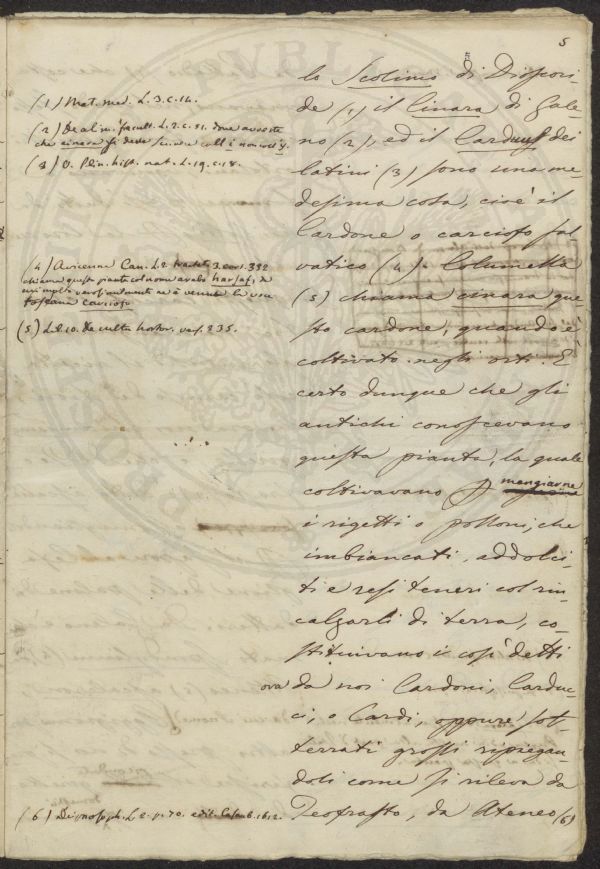 5
lo Scolimo di Dioscori-
de (1) il Cinara di Gale-
no (2), ed il Carduus dei
latini (3) sono una me-
desima cosa, cioè il
Cardone o carciofo sal-
vatico (4). Columella
(5) chiama cinara que-
sto cardone, quando è
coltivato negli orti. È
certo dunque che gli
antichi conoscevano
questa pianta, la quale
coltivavano p mangiarne
i rigetti o polloni, che
imbiancati, addolci-
ti e resi teneri col rin-
calzarli di terra, co-
stituivano i così detti
ora da noi Cardoni, Carduc-
ci, o Cardi, oppure sot-
terrati grossi ripiegan-
doli come si rileva da
Teofrasto, da Ateneo (6)
(1) Mat. med. L. 3. c. 14.
(2) De alim. facult. L. 2. c. 51. dove
che cinara si deve scrivere coll' i non coll' y.
(3) V. Plin. hist. nat. L. 19. c. 8.
(4) Avicenna Can. L. 2. 3. 392
chiama questa pianta col nome arabo harsaf, e
ne è venuta la voce
toscana carciofo
(5) L. 10. De cultu hortor. 235.
(6) Dipnosoph. L. 2. p. 70. edit. Casaub. 1612.